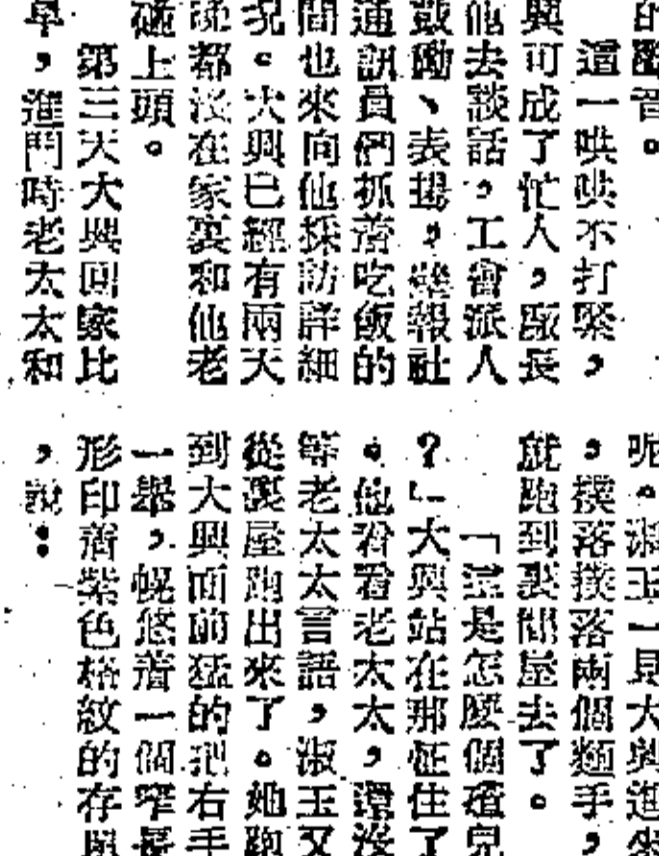 的聲音。
這一哄哄不打緊，
興可成了忙人，廠長
他去談話，工會派人
鼓勵、表揚，報社
通訊員們抓着吃飯的
間也來向他採訪詳細
況。大興已經有兩天
晚都沒在家裏和他老
碰上頭。
第三天大興回家比
早，進門時老太太和
呢。淑玉一見大興進來
，撲落撲落兩個麵手，
就跑到裏間屋去了。
「這是怎麼個碴兒
？」大興站在那怔住了
。他看看老太太，還沒
等老太太言語，淑玉又
從裏屋跑出來了。她跑
到大興面前猛的把右手
一舉，幌悠着一個窄長
形印着紫色格紋的存
，說：